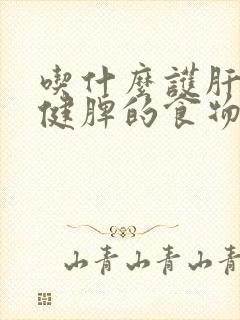 喫什麼護肝
健脾的食物
山青山青山青